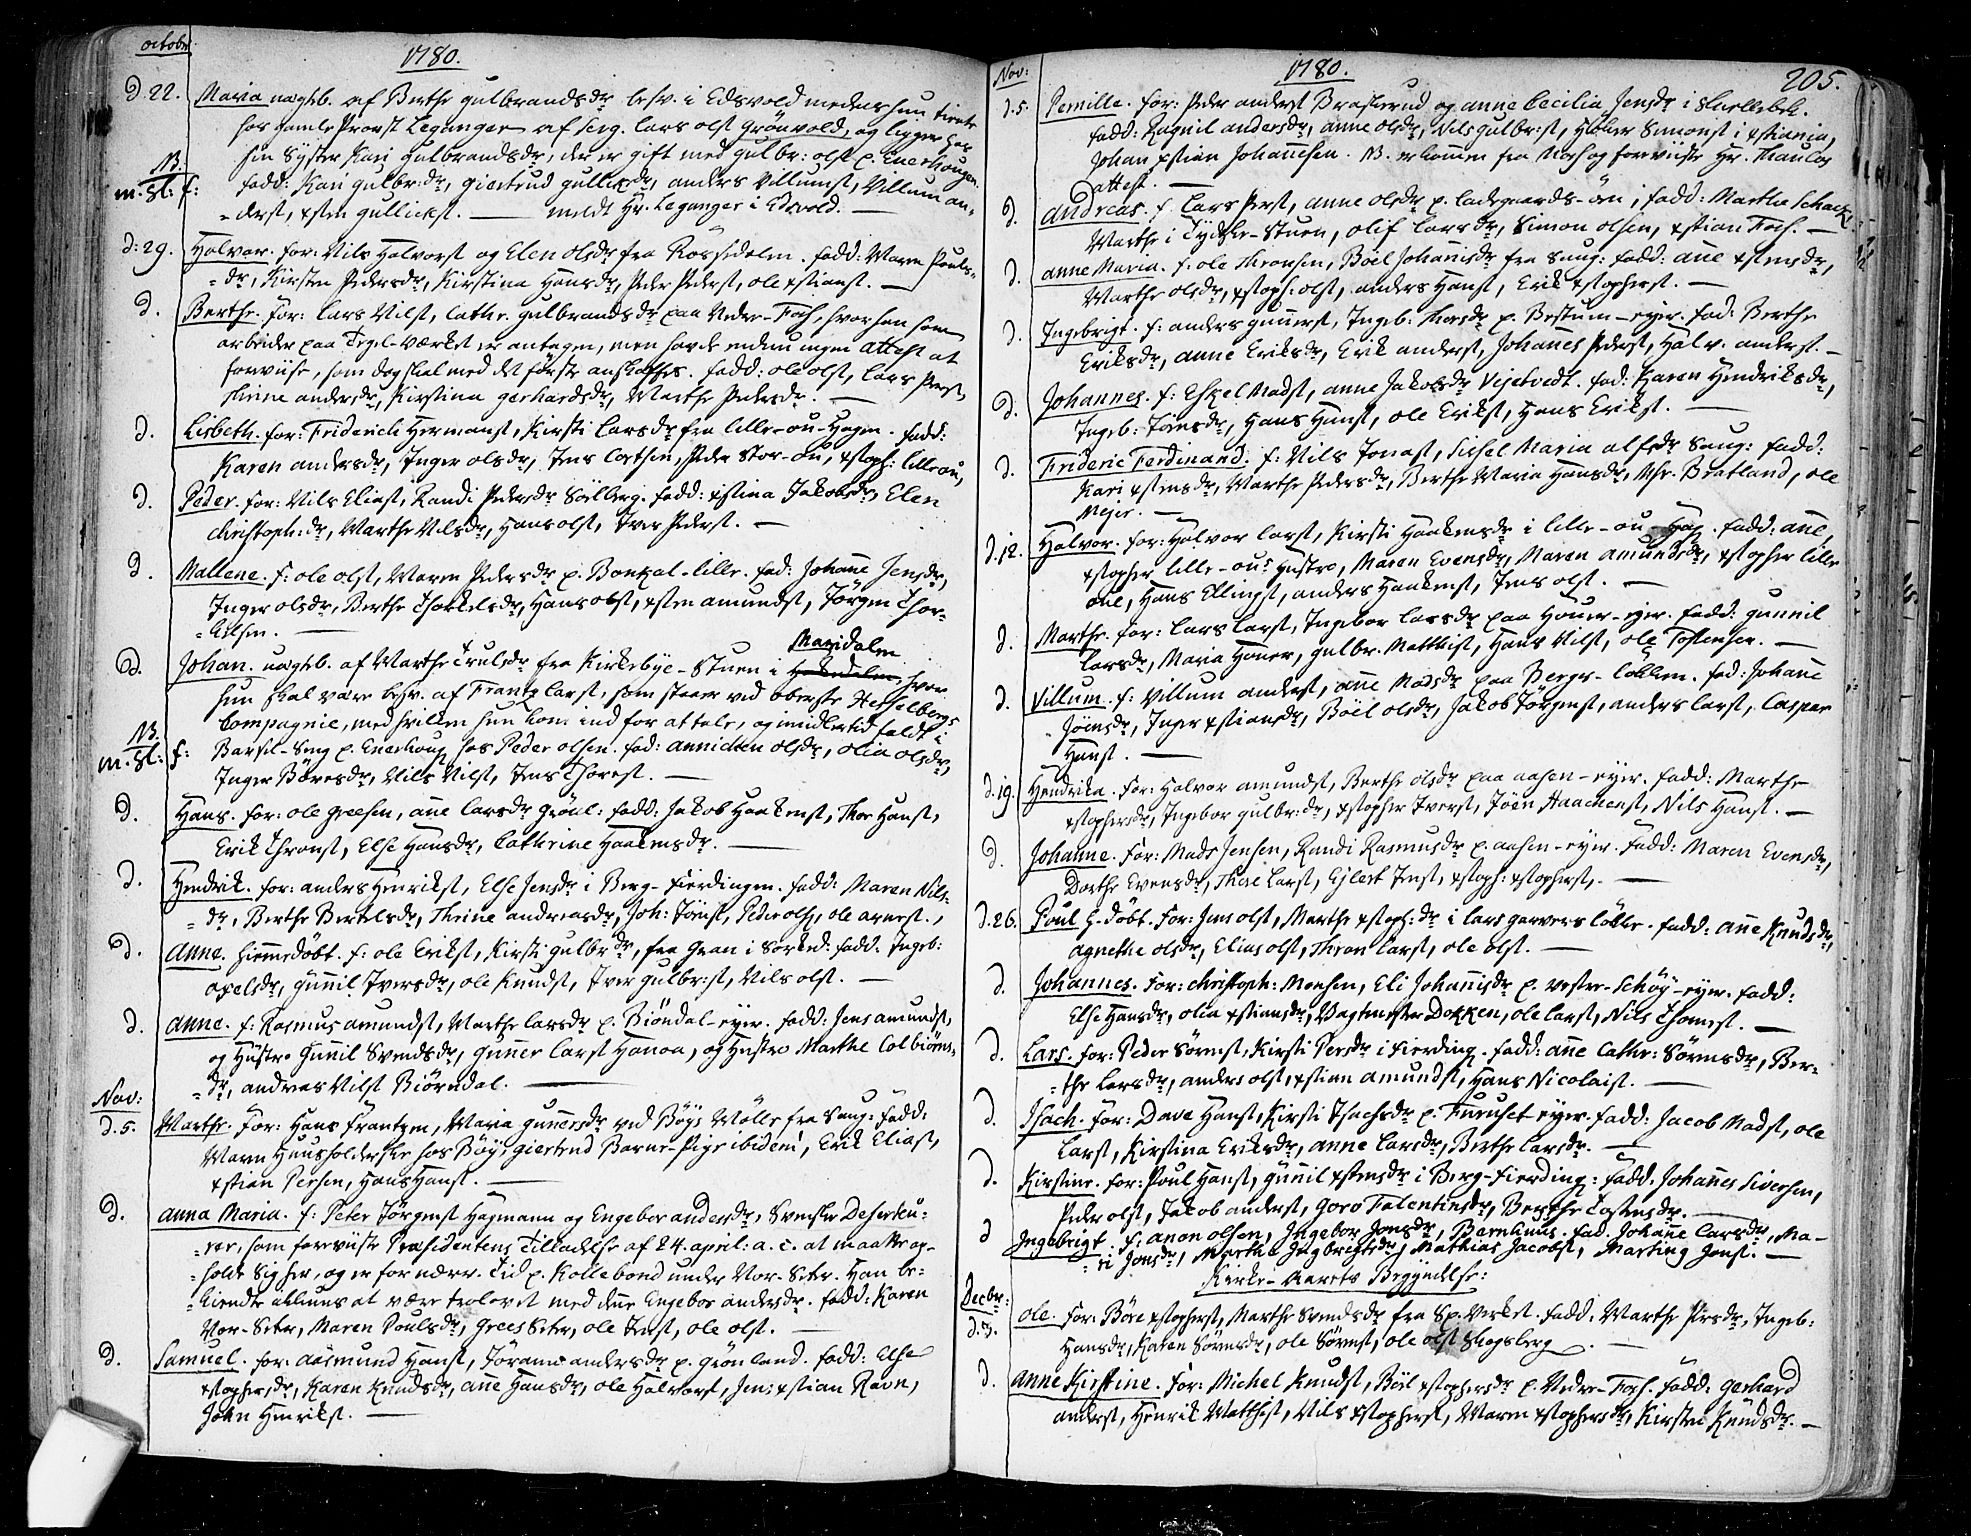 octobr:
1780.
d. 22. Maria uægtb. af Berthe gulbrandsdr besv. i Edsvold medens hun tiente
hos gamle Provst Leganger af Serg. Lars olst Grönvold, og ligger her
hos Syster Kari gulbrandsdr, der er gift med gulbr: olst p. Enerhougen.
NB. m. sl: f: fadd: Kari gulbr:dr, giertrud gullichsdr, anders Villumst, Villum an-
-derst, xsten gullichst. — meldt Hr. Leganger i Edsvold. —
d: 29. Halvar. for: Nils Halvorst og Elen olsdr fra Rossedalen. fadd: Maren Pouls-
-dr, Kirsten Pedersdr, Kirstina Hansdr, Peder Pederst, ole xstianst. —
d. Berthe. for: Lars Nilst, Cathr. gulbrandsdr paa Nedre-Foss, hvor han som
arbeider paa Tegl-værket er antagen, men havde endnu ingen attest at
foreviise, som dog skal med det förste anskaffes. fadd: ole olst, Lars Perst,
Stine andersdr, Kirstina gerhardsdr, Marthe Pedersdr. —
d. Lisbeth. for: Friderich Hermanst, Kirsti Larsdr fra lille-ou-Hagen. fadd:
Karen andersdr, Inger olsdr, Jens Carlsen, Peder Stor-ou, xstoph: lilleou,
d. Peder. for: Nils Eliast, Randi Pedersdr Solberg. fadd: xstina Jakobsdr, Elen
Christoph:dr, Marthe Nilsdr, Hans olst, Iver Pederst. —
d. Mallene. f: ole olst, Maren Pedersdr p. Bontzal-lille. fad: Johanne Jensdr,
Inger olsdr, Berthe Thorkelsdr, Hans olst, xsten amundst, Jörgen Thor-
-kilsen. —
d. Johan. uægtb. af Marthe Trulsdr fra Kirkebye-Stuen i Maridalen, hvor
hun skal være besv. af Frantz Larst, som staaer ved oberste Hesselbergs
Compagnie, med hvilken hun kom ind for at tale, og imidlertid faldt i
NB. m. sl: f: Barsel-Seng p. Enerhoug hos Peder olsen. fad: annichen olsdr, olia olsdr,
Inger Böresdr, Nils Nilst, Jens Thorest. —
d. Hans. for: ole greesen, anne Larsdr Grönl: fadd: Jakob Haakenst, Thor Hanst,
Erik Thronst, Else Hansdr, Cathrine Haakensdr. —
d. Hendrik. for: anders Henrikst, Else Jensdr i Berg-Fierdingen. fadd: Maren Nils-
-dr, Berthe Bertelsdr, Thrine andreasdr, Joh: Jönst, Peder olst, ole arnest.,
d. Anne. hiemmedöbt. f: ole Erikst, Kirsti gulbrdr, fra Gran i Sorked: fadd. Ingeb:
axelsdr, gunnil Iversdr, ole Knudst, Iver gulbr:st, Nils olst. —
d. anne. f: Rasmus amundst, Marthe Larsdr p. Biöndal-eyer. fadd: Jens amundst,
og Hustro gunnil Svendsdr, gunner Larst Hanoa, og Hustro Marthe Colbiörns-
-dr, andreas Nilst Biörndal. —
Nov:
d. 5. Marthe. for: Hans Frantzen, Maria gunnersdr ved Böys Mölle fra Saug: fadd:
Maren Huusholderske hos Böys giertrud Barne-Pige ibidem, Erik Eliast,
xstian Persen, Hans Hanst. —
d. anna Maria. f: Peter Jörgenst Hagmann og Engebor andersdr, Svenske Deserteu-
-rer, som foreviiste Præsidentens Tilladelse af 24. april: a. c. at maatte op-
-holde sig her, og er for nærv. Tid p. Kollebond under Vor-Seter. Han be-
-kiendte allene at være trolovet med denne Engebor andersdr. fadd: Karen
Vor-Seter, Maren Poulsdr, Grees Seter, ole Jenst, ole olst. —
d. Samuel. for: Aasmund Hanst, Jörann andersdr p. grönland. fadd: Else
xstophersdr, Karen Knudsdr, anne Hansdr, ole Halvorst, Jens xstian Ravn,
John Henrikst. —
Nov:
1780.
205.
d. 5. Pernille. for: Peder anderst Braskerud og anne Cecilia Jensdr i Skellebek.
fadd: Ragnil andersdr, anne olsdr, Nils gulbr:st, Halvor Simonst i xstiania,
Johan xstian Johannesen. NB. er kommen fra Næs og foreviiste Hr. Thaulos
attest. —
d. andreas. f. Lars Perst, anne olsdr p. Ladegaards-öen; fadd: Martha Schacht,
Marthe i Tydske-Stuen, olif Larsdr, Simon olsen, xstian Fos. —
d. anne Maria. f: ole Thronsen, Böel Johannisdr fra Saug: fadd: anne xstensdr,
Marthe olsdr, xstoph: olst, anders Hanst, Erik xstopherst. —
d. Ingebrigt. f: anders gunnerst, Ingeb: Thoresdr p. Bestum-eyer. fad: Berthe
Eriksdr, anne Eriksdr, Erik anderst, Johannes Pederst, Halv. anderst. —
d. Johannes. f: Eskel Madst, anne Jakobsdr Vejetvedt. fad: Karen Hendriksdr,
Ingeb: Jönsdr, Hans Hanst, ole Erikst, Hans Erikst. —
d. Frideric Ferdinand. f: Nils Jonast, Sissel Maria alfsdr Saug: fadd:
Kari xstensdr, Marthe Pedersdr, Berthe Maria Hansdr, Mr. Bratland, ole
Mejer. —
d. 12. Halvor. for: Halvor Larst, Kirsti Haakensdr i lille-ou-Hag. fadd: anne,
xstopher lille-ou's Hustro, Maren Evensdr, Maren amundsdr, xstopher lille
oue, Hans Ellingst, anders Haakenst, Jens olst. —
d. Marthe. for: Lars Larst, Ingebor Larsdr paa Houer-eyer. fadd: gunnil
Larsdr, Maria Houer, gulbr. Matthist, Hans Nilst, ole Tostensen. —
d. Villum. f: Villum anderst, anne Madsdr paa Berger-lökken. fad: Johanne
Jönsdr, Inger xstiansdr, Böel olsdr, Jakob Jörgenst, anders Larst, Casper
Hanst. —
d. 19. Hendrika. for: Halvor amundst, Berthe olsdr paa aasen-eyer. fadd: Marthe
xstophersdr, Ingebor gulbr:dr, xstopher Iverst, Jöen Haachenst, Nils Hanst. —
d. Johanne. for: Mads Jensen, Randi Rasmusdr p. aasen-eyer. fadd: Maren Evensdr,
Dorthe Evensdr, Thore Larst, Ejlert Jenst, xstoph: xstopherst. —
d. 26. Poul h-döbt. for: Jens olst, Marthe xstoph:dr i Lars garvers lökke. fadd: anne Knudsdr,
agnethe olsdr, Elias olst, Thron Larst, ole olst. —
d. Johannes. for: Christoph: Monsen, Eli Johannisdr p. vestre-Schöy-eyer. fadd:
Else Hansdr, olia xstiansdr, Vagtmester Dokken, ole Larst, Nils Thomst. —
d. Lars. for: Peder Sörenst, Kirsti Persdr i Fierding. fadd: anne Cathr: Sörensdr, Ber-
-the Larsdr, anders olst, xstian amundst, Hans Nicolaist. —
d. Isach. for: Dave Hanst, Kirsti Isachsdr p. Furuset eyer. fadd: Jacob Madst, ole
Larst, Kirstina Eriksdr, anne Larsdr, Berthe Larsdr. —
d. Kirstine. for: Poul Hanst, gunnil xstensdr i Berg-Fierding: fadd. Johannes Siversen,
Peder olst, Jakob anderst, Goro Falentinsdr, Berthe Tostensdr. —
d Ingebrigt f: anon olsen, Ingebor Jonsdr, Bernhuus. fad. Johanne Larsdr, Ma-
-ri Jonsdr, Marthe Ingbrigtsdr, Mathias Jacobst, Marting Jonst. —
Kirke-Aarets Begyndelse:
Decbr:
d. 3. ole. for: Böre xstopherst, Marthe Svendsdr fra Sp.Verket. fadd: Marthe Persdr, Ingeb:
Hansdr, Karen Sörensdr, ole Sörenst, ole olst Skogsberg. —
d. Anne Kirstine. for: Michel Knudst, Böel xstophersdr p. Nedre-Foss. fadd: Gerhard
anderst, Henrik Matthist, Nils xstopherst, Maren xstophersdr, Kirsten Knudsdr. —